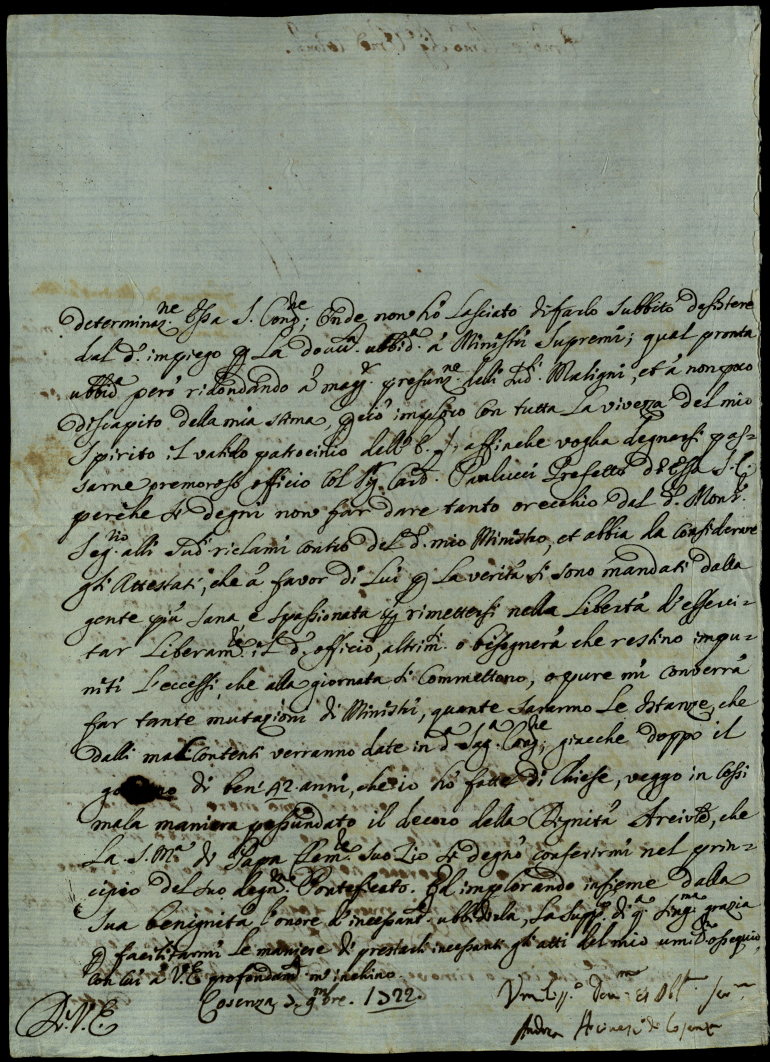 determinaz.ne Essa S. Cong.ne; Onde non hò lasciato di farlo subbito desistere
dal d.o impiego p la dovu.a ubbid.a à Ministri Supremi; qual pronta
ubbid.a però ridondando à magg.r presunz.ne delli Sud.i Maligni, et à non poco
discapito della mia stima, perciò imploro con tutta la vivezza del mio
Spirito il valido patrocinio dell' E. V., affinche voglia degnarsi pas=
sarne premuroso officio col Sig. Card. Paulucci Prefetto di Essa S. C.
perche si degni non far dare tanto orecchio dal d.o Mons.r
Seg.rio alli Sud.i riclami contro del d.o mio Ministro, et abbia da considerare
gli Attestati, che à favor di Lui p la verità si sono mandati dalla
gente più sana e spassionata p rimettersi nella libertà d'esserci=
tar liberam.te il d.o officio, altrim.ti o bisognerà che restino impu=
niti l'eccessi, che alla giornata si commettono, oppure mi converrà
far tante mutazioni di Ministri, quante saranno le istanze, che
dalli mal contenti verranno date in d.a Sag.a Cong.ne; giacche doppo il
di ben' 42. anni, che io hò fatto di Chiese, veggo in cossi
mala maniera pessundato il decoro della Dignità Arcivle, che
la S. M.a di Papa Clem.te suo Zio si degnò conferirmi nel prin=
cipio del suo degn.mo Pontificato. Ed implorando insieme dalla
sua benignità l'onore d'incessant. ubbidirla, la supp.co di q.a sing.ma grazia
p facilitarmi le maniere di prestarli incessanti gli atti del mio umil.mo ossequio,
con cui à V. E. profondam.te m'inchino.
Cosenza 3. 9mbre. 1722.
Di V. E.
Dev.mo et Obl.mo Ser.re
Andrea di Cosenza